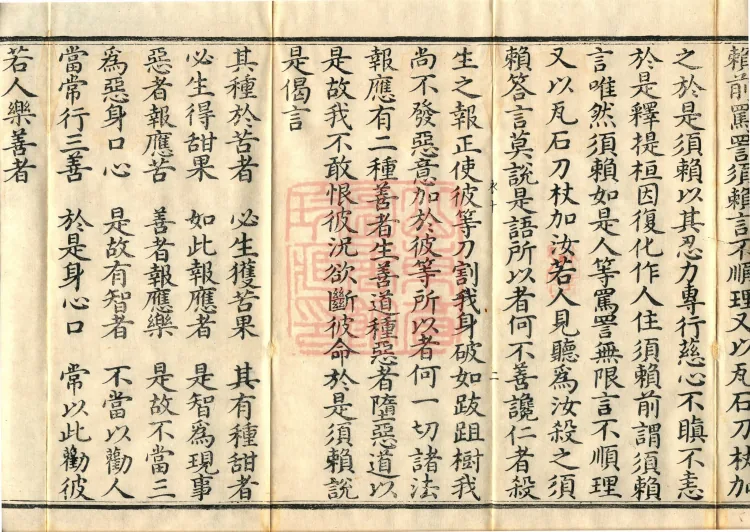 賴前罵詈須賴言不順理又以瓦石刀杖加
之於是須賴以其忍力專行慈心不瞋不恚
於是釋提桓因復化作人住須賴前謂須賴
言唯然須賴如是人等罵詈無限言不順理
又以瓦石刀杖加汝若人見聽爲汝殺之須
賴答言莫說是語所以者何不善讒仁者殺
生之報正使彼等刀割我身破如跋跙樹我
尚不發惡意加於彼等所以者何一切諸法
報應有二種善者生善道種惡者墮惡道以
是故我不敢恨彼況欲斷彼命於是須賴說
是偈言
其種於苦者　必生獲苦果　其有種甜者
必生得甜果　如此報應者　是智爲現事
惡者報應苦　善者報應樂　是故不當三
爲惡身口心　是故有智者　不當以勸人
當常行三善　於是身心口　常以此勸彼
若人樂善者
二